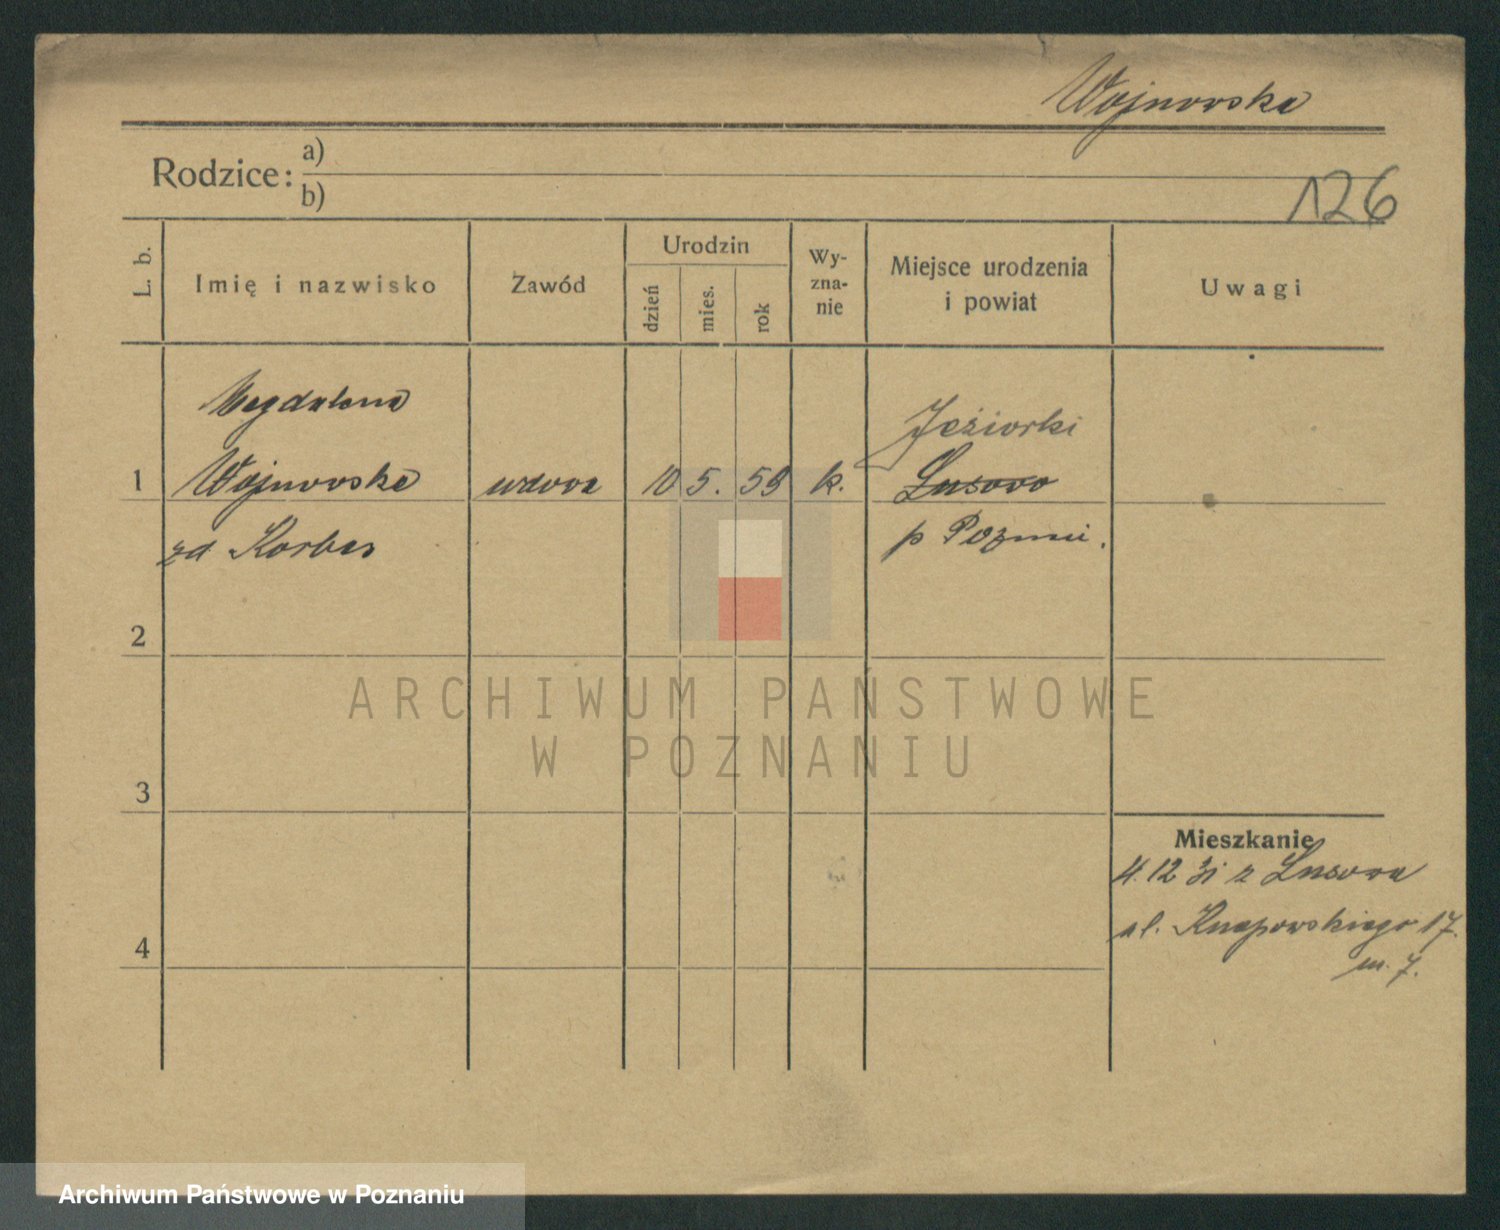 Wojnowska
Rodzice: a)
b)
126
L. b.
Imię i nazwisko
Zawód
Urodzin
dzień
mies.
rok
Wy-
zna-
nie
Miejsce urodzenia
i powiat
Uwagi
Magdalena
1 Wojnowska wdowa 10 5. 59 k. Jeziorki
Lusowo
zd Korbas
p Poznań.
2
3
4
Mieszkanie
4.12 31 z Lusowa
ul. Knapowskiego 17.
m. 7.
ARCHIWUM PAŃSTWOWE
W POZNANIU
Archiwum Państwowe w Poznaniu